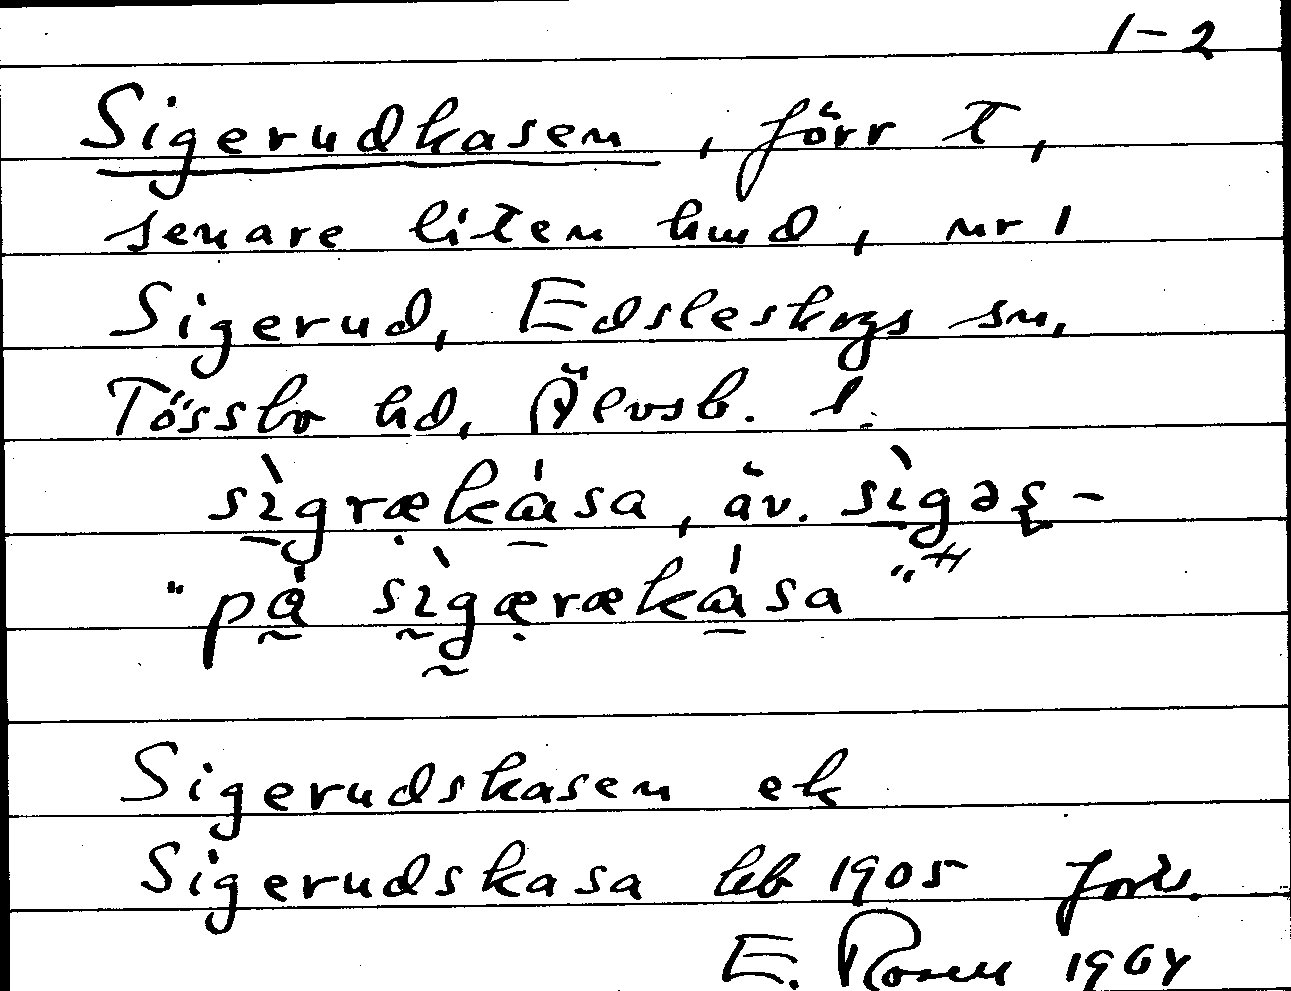 1-2
Sigerudkasen, förr t,
senare liten hmd, nr 1
Sigerud, Edsleskogs sn,
Tössbo hd, Älvsb. l.
sìgrækása, äv. sìgəṣ-
"på sìgærækása"
Sigerudskasen ek
Sigerudskasa hb 1905 forts.
E. Rosell 1964